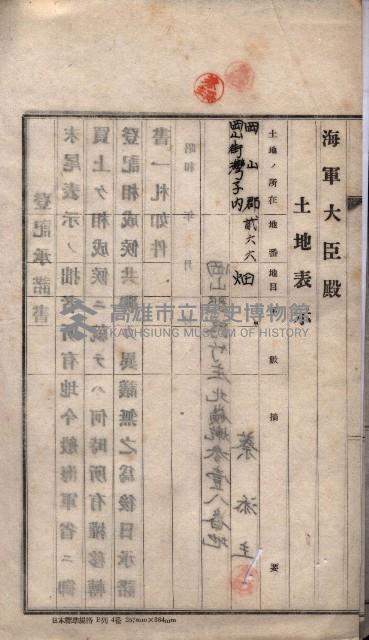 海軍大臣殿
土地表示
土地ノ所在 地番 地目 甲數 摘要
岡山郡
岡山街灣子內
貳六六 畑
蔡添主
昭和 年 月
書一札如件
登記相成候共異議無之為後日承諾
買上ケ相成候ニ就テハ何時所有權移轉
末尾表示ノ拙者所有地今般海軍省ニ御
登記承諾書
高雄市立歷史博物館
KAOHSIUNG MUSEUM OF HISTORY
日本標準規格 B列4番 257mm×364mm